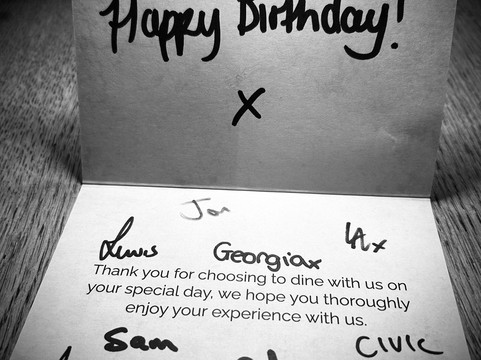 Happy Birthday!
X
Jon
Lewis
Georgiax
Thank you for choosing to dine with us on
your special day, we hope you thoroughly
enjoy your experience with us.
Sam
CIVIC